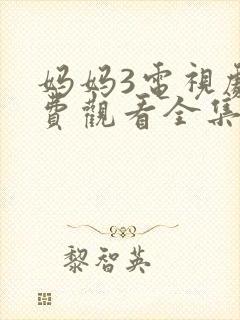 妈妈3雷視劇
費觀看全集
黎智英